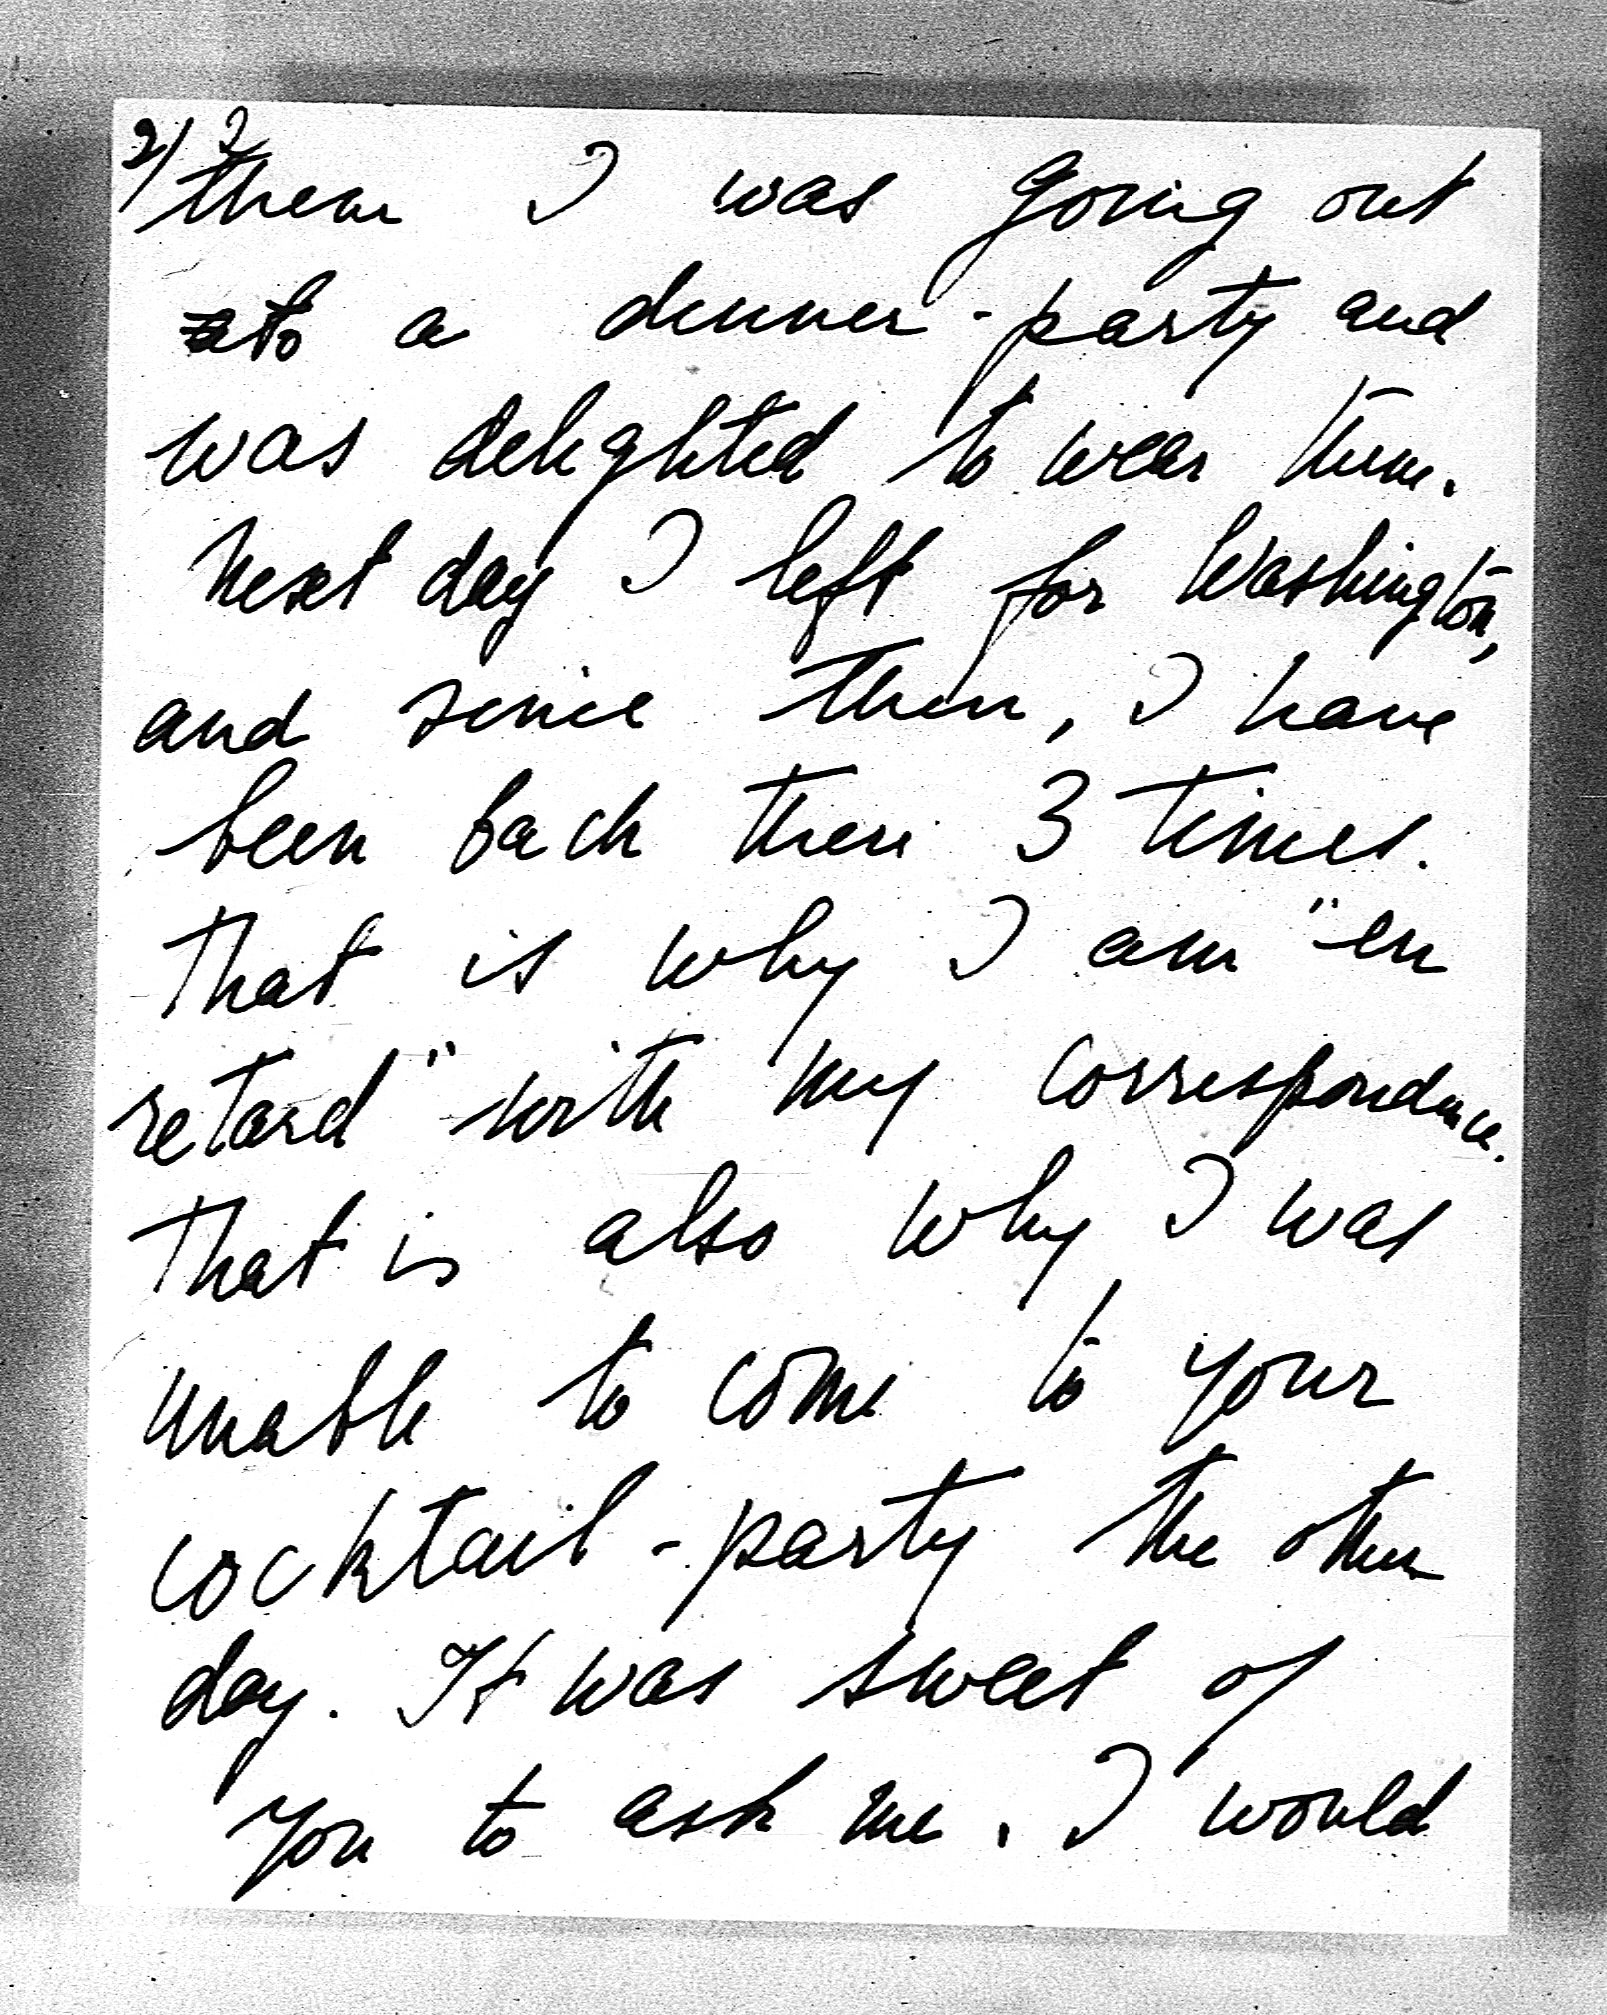 2/ 2
them I was going out
to a dinner-party and
was delighted to wear them.
Next day I left for Washington,
and since then, I have
been back there 3 times.
That is why I am "en
retard" with my correspondence.
That is also why I was
unable to come to your
cocktail-party the other
day. It was sweet of
you to ask me. I would